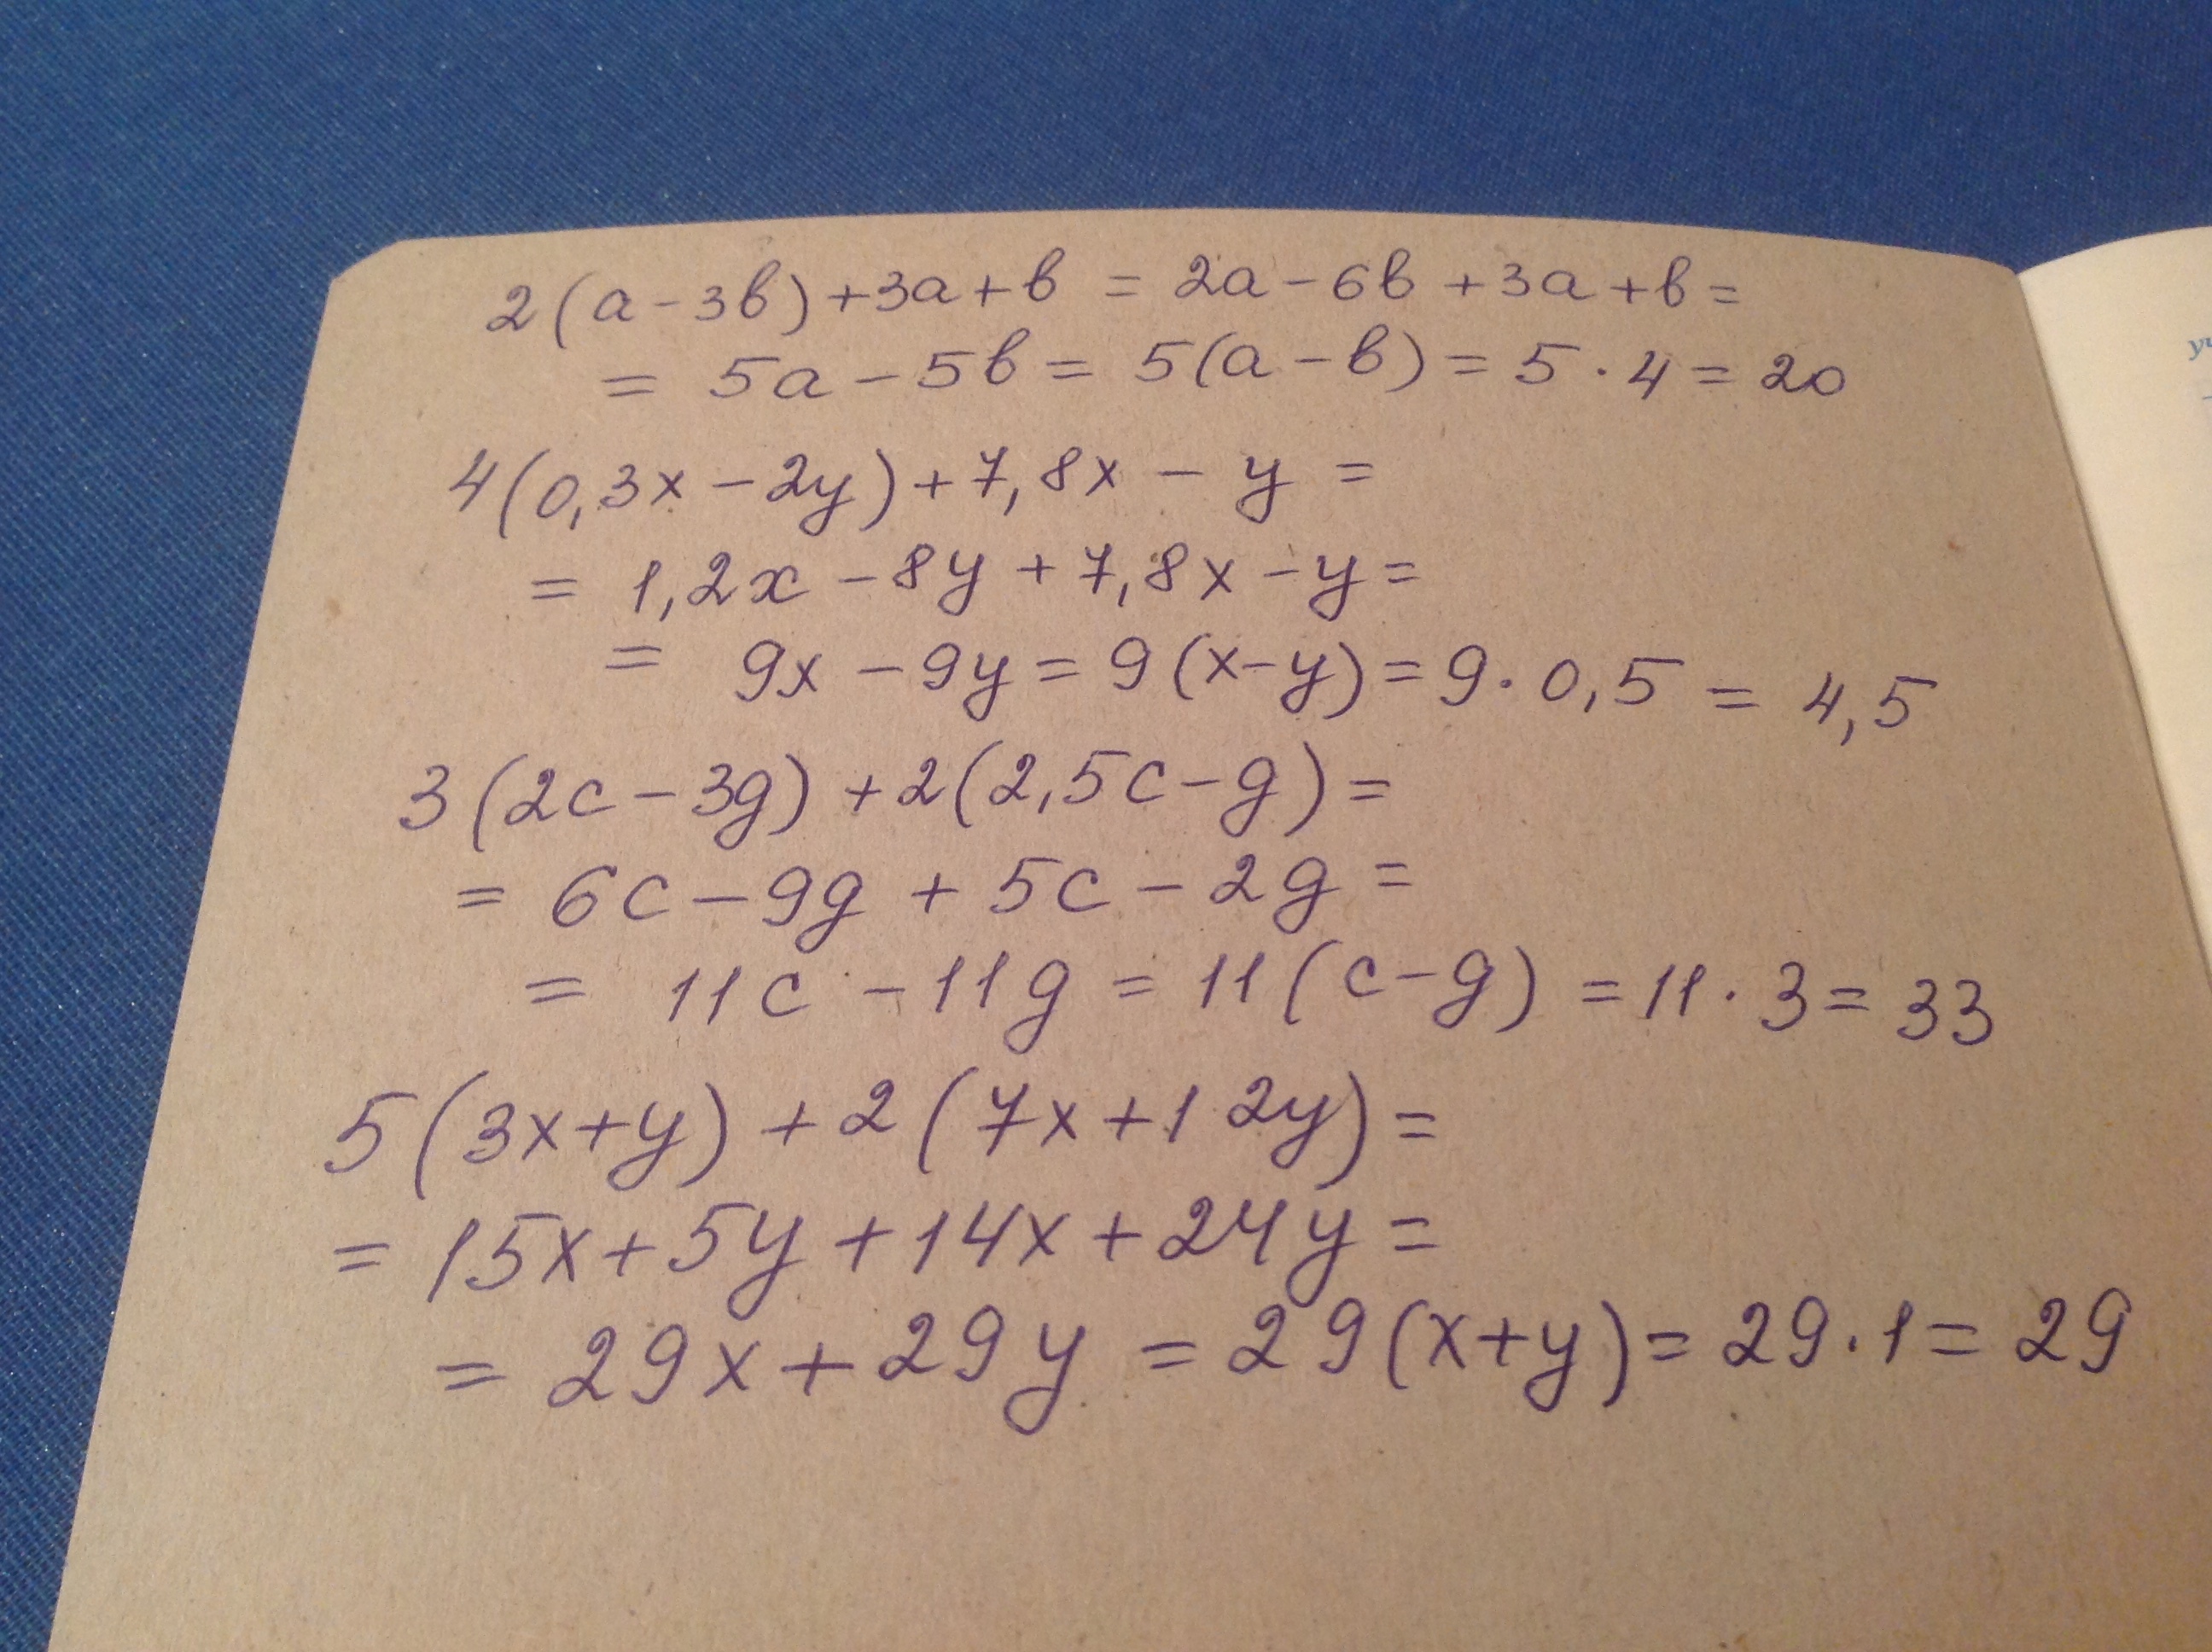 2(a-3b)+3a+b = 2a-6b+3a+b=
= 5a-5b= 5(a-b)=5·4=20
4(0,3x-2y)+7,8x-y=
= 1,2x-8y+7,8x-y=
= 9x-9y=9(x-y)=9·0,5=4,5
3(2c-3g)+2(2,5c-g)=
= 6c-9g+5c-2g=
= 11c-11g=11(c-g)=11·3=33
5(3x+y)+2(7x+12y)=
=15x+5y+14x+24y=
= 29x+29y=29(x+y)=29·1=29